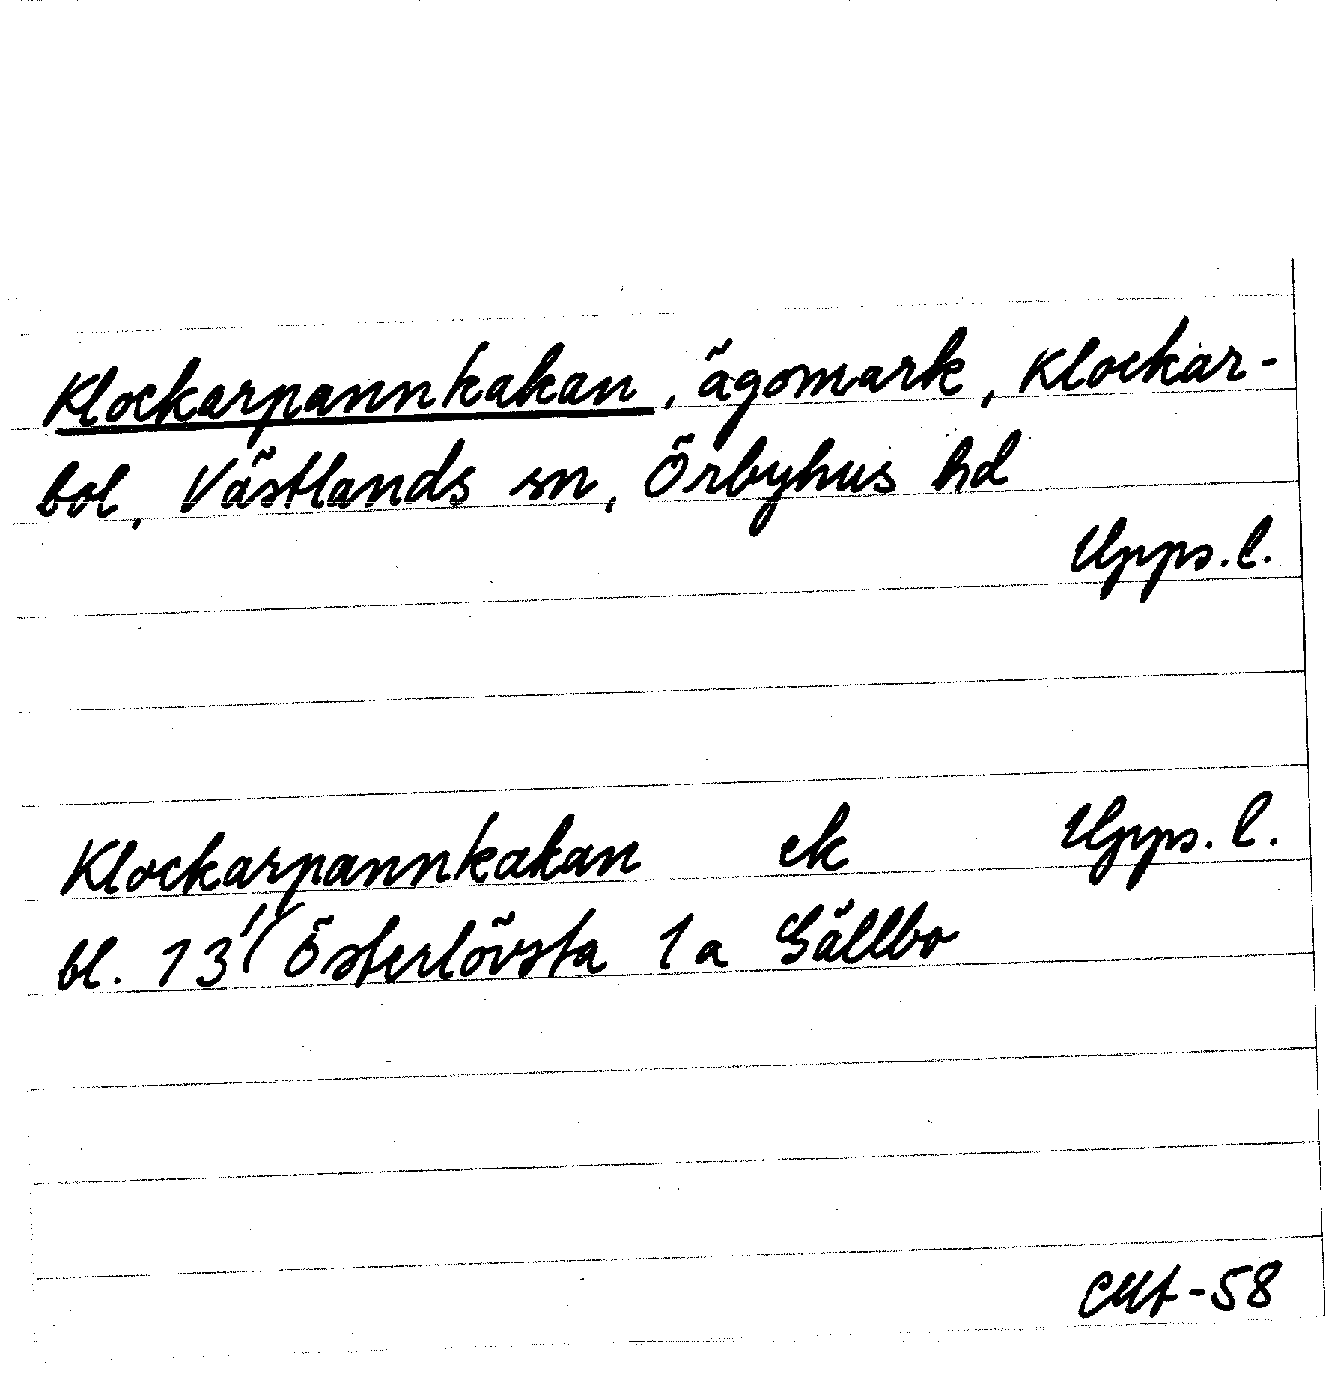 Klockarpannkakan, ägomark, Klockar-
bol, Västlands sn, Örbyhus hd
Upps. l.
Klockarpannkakan ek Upps. l.
bl. 13 ( Österlövsta 1a Sällbo
-58